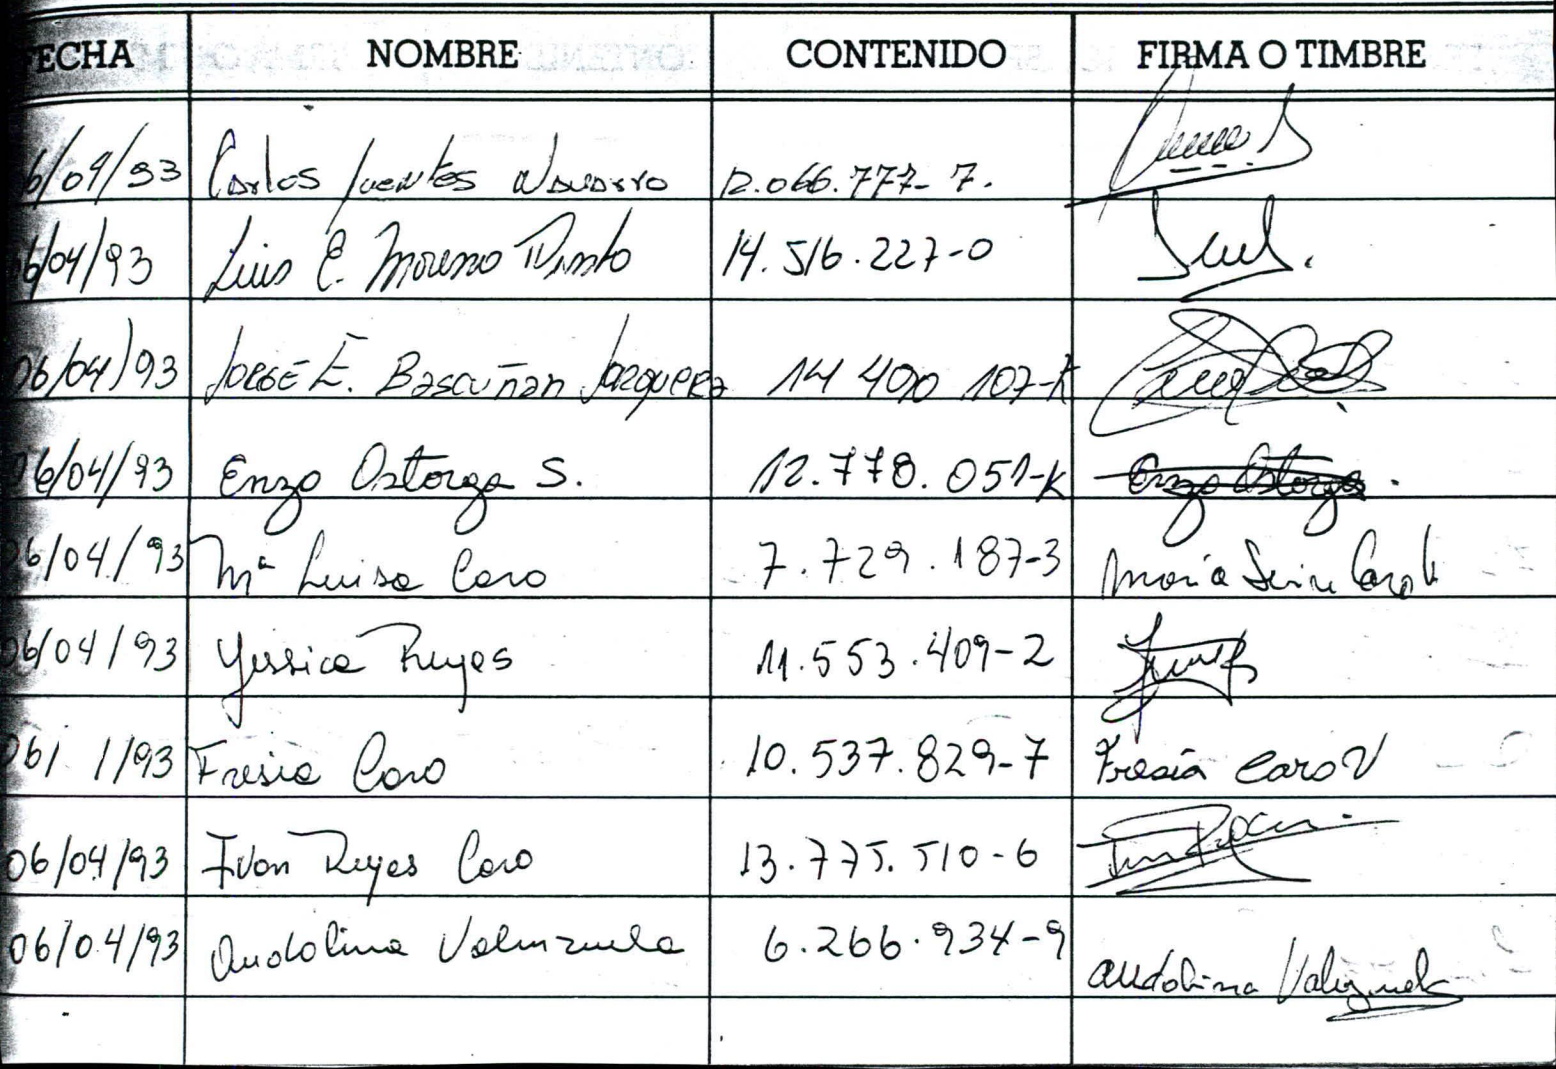 FECHA NOMBRE CONTENIDO FIRMA O TIMBRE
6/04/93 Carlos Fuentes Navarro 12.066.777-7.
6/04/93 Luis E. Moreno Pinto 14.516.227-0
06/04/93 JORGE E. Bascuñan Jorquera 14 400 107-K
06/04/93 Enzo Ostorga S. 12.778.051-K Enzo Ostorga.
06/04/93 Mª Luisa Caro 7.729.187-3 Maria Luisa Caro
06/04/93 Yessica Reyes 11.553.409-2
06/ /93 Fresia Caro 10.537.829-7 Fresia Caro V
06/04/93 Ivon Reyes Caro 13.775.510-6
06/04/93 Audolina Valenzuela 6.266.934-9 Audolina Valenzuela